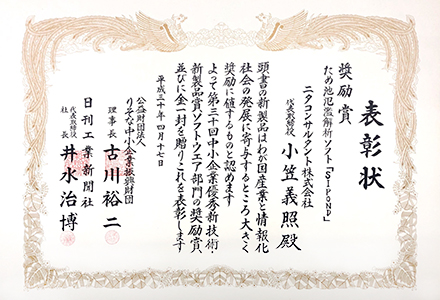 表彰状
奨励賞
ため池氾濫解析ソフト「SIPOND」
ニタコンサルタント株式会社
代表取締役 小笠義照殿
頭書の新製品はわが国産業と情報化
社会の発展に寄与するところ大きく
奨励に値するものと認めます
よって第三十回中小企業優秀新技術・
新製品賞ソフトウエア部門の奨励賞、
並びに金一封を贈りこれを表彰します
平成三十年四月十七日
公益財団法人
りそな中小企業振興財団
理事長 古川裕二
日刊工業新聞社
代表取締役
社長 井水治博